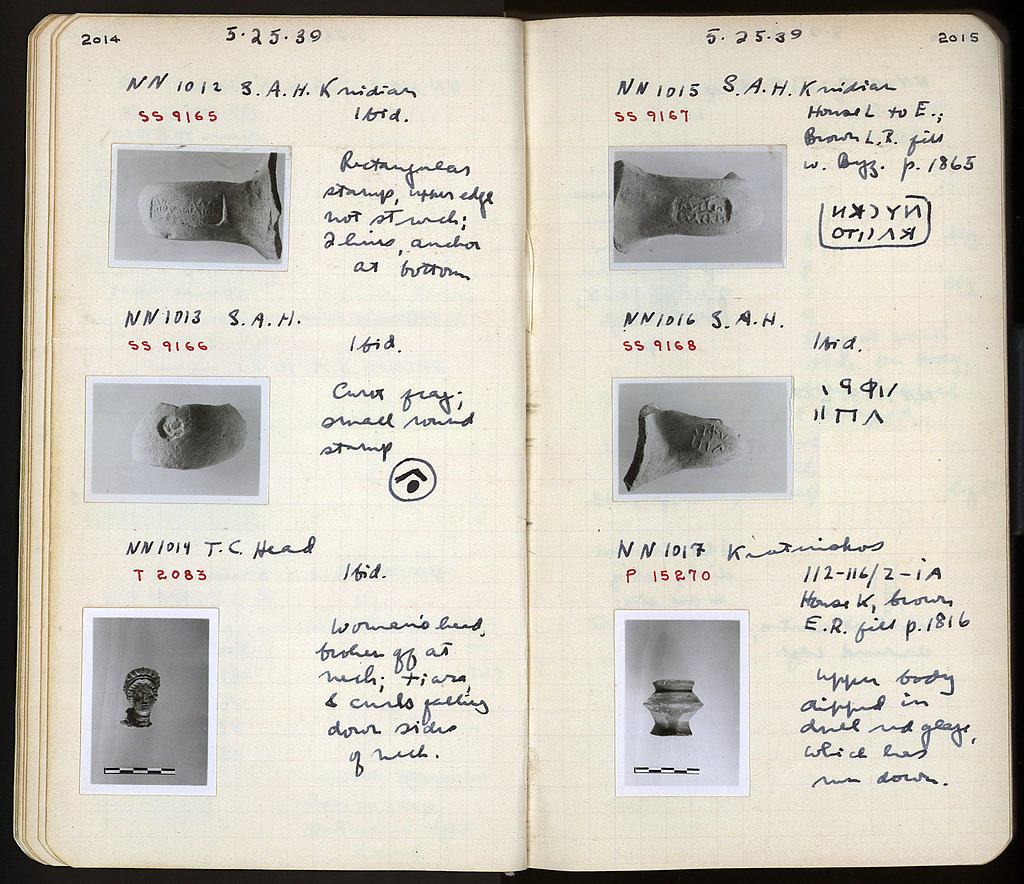 2014
5·25·39
NN 1012 S.A.H. Knidian
SS 9165
Ibid.
Rectangular
stamp, upper edge
not struck;
2 lines, anchor
at bottom
NN 1013 S.A.H.
SS 9166
Ibid.
Curot frag;
small round
stamp
NN 1014 T.C. Head
T 2083
Ibid.
Woman's head,
broken off at
neck; tiara,
& curls falling
down sides
of neck.
5·25·39
2015
NN 1015 S.A.H. Knidian
SS 9167
House L to E.;
Brown L.R. fill
w. Byz. p. 1865
NN 1016 S.A.H.
SS 9168
Ibid.
NN 1017
P 15270
112-116/2-ΙΑ
House K, brown
E.R. fill p. 1816
Upper body
dipped in
dull red glaze,
which has
run down.